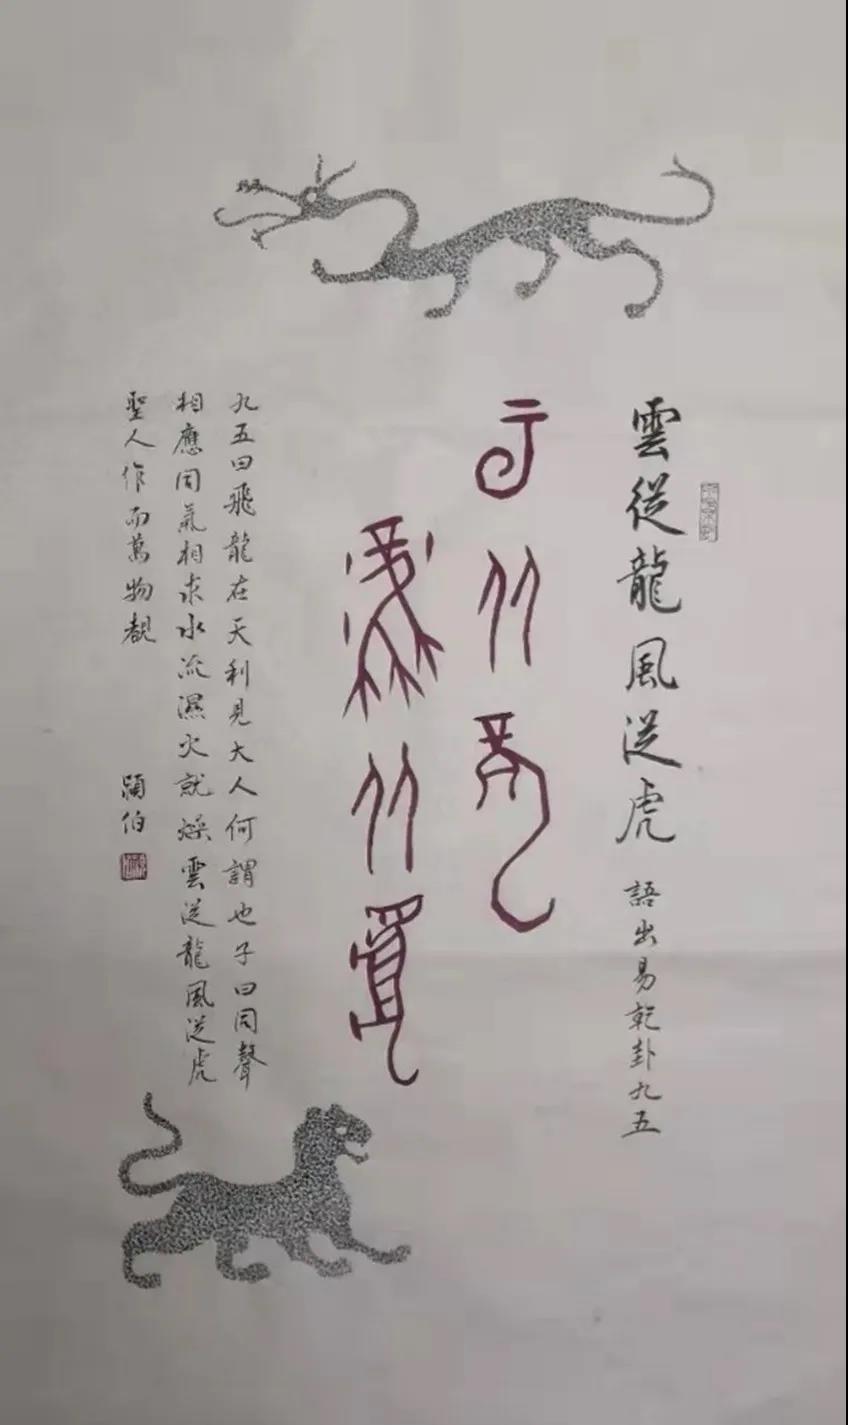 雲從龍風從虎 語出易乾卦九五
云从龍
風从虎
九五曰飛龍在天利見大人何謂也子曰同聲
相應同氣相求水流濕火就燥雲從龍風從虎
聖人作而萬物覩
頴伯